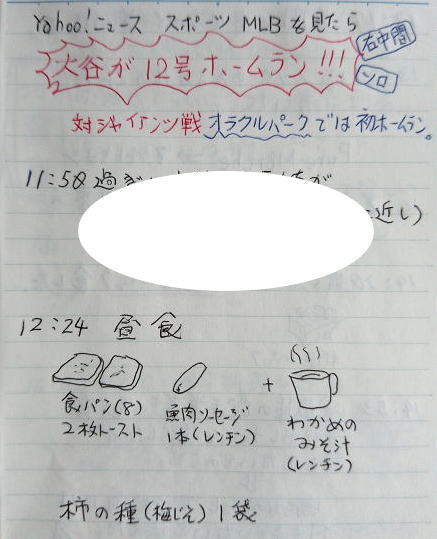 Yahoo!ニュース スポーツ MLBを見たら
大谷が12号ホームラン!!!
右中間
ソロ
対ジャイアンツ戦 オラクルパークでは初ホームラン。
11:50過ぎ
近し)
12:24 昼食
食パン(8)
2枚トースト
魚肉ソーセージ
1本(レンチン)
+
わかめの
みそ汁
(レンチン)
柿の種(梅じそ)1袋